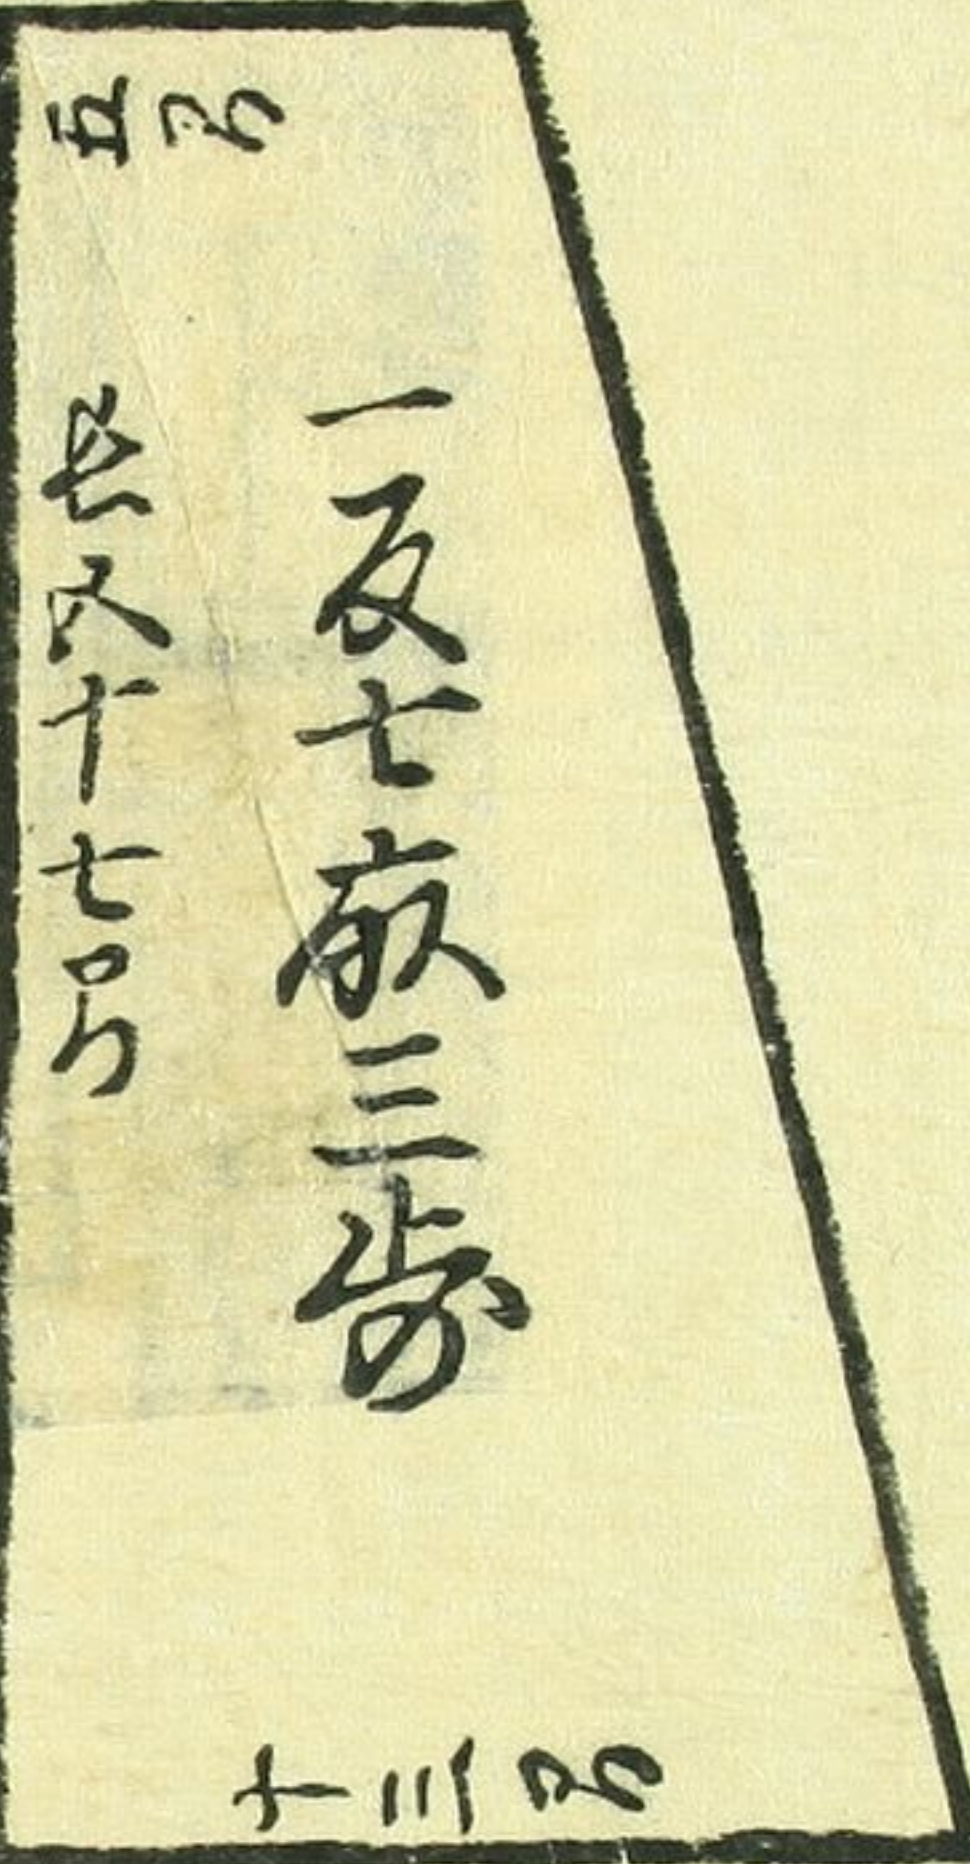 五間
一反七畝三歩
長五十七間
十三間